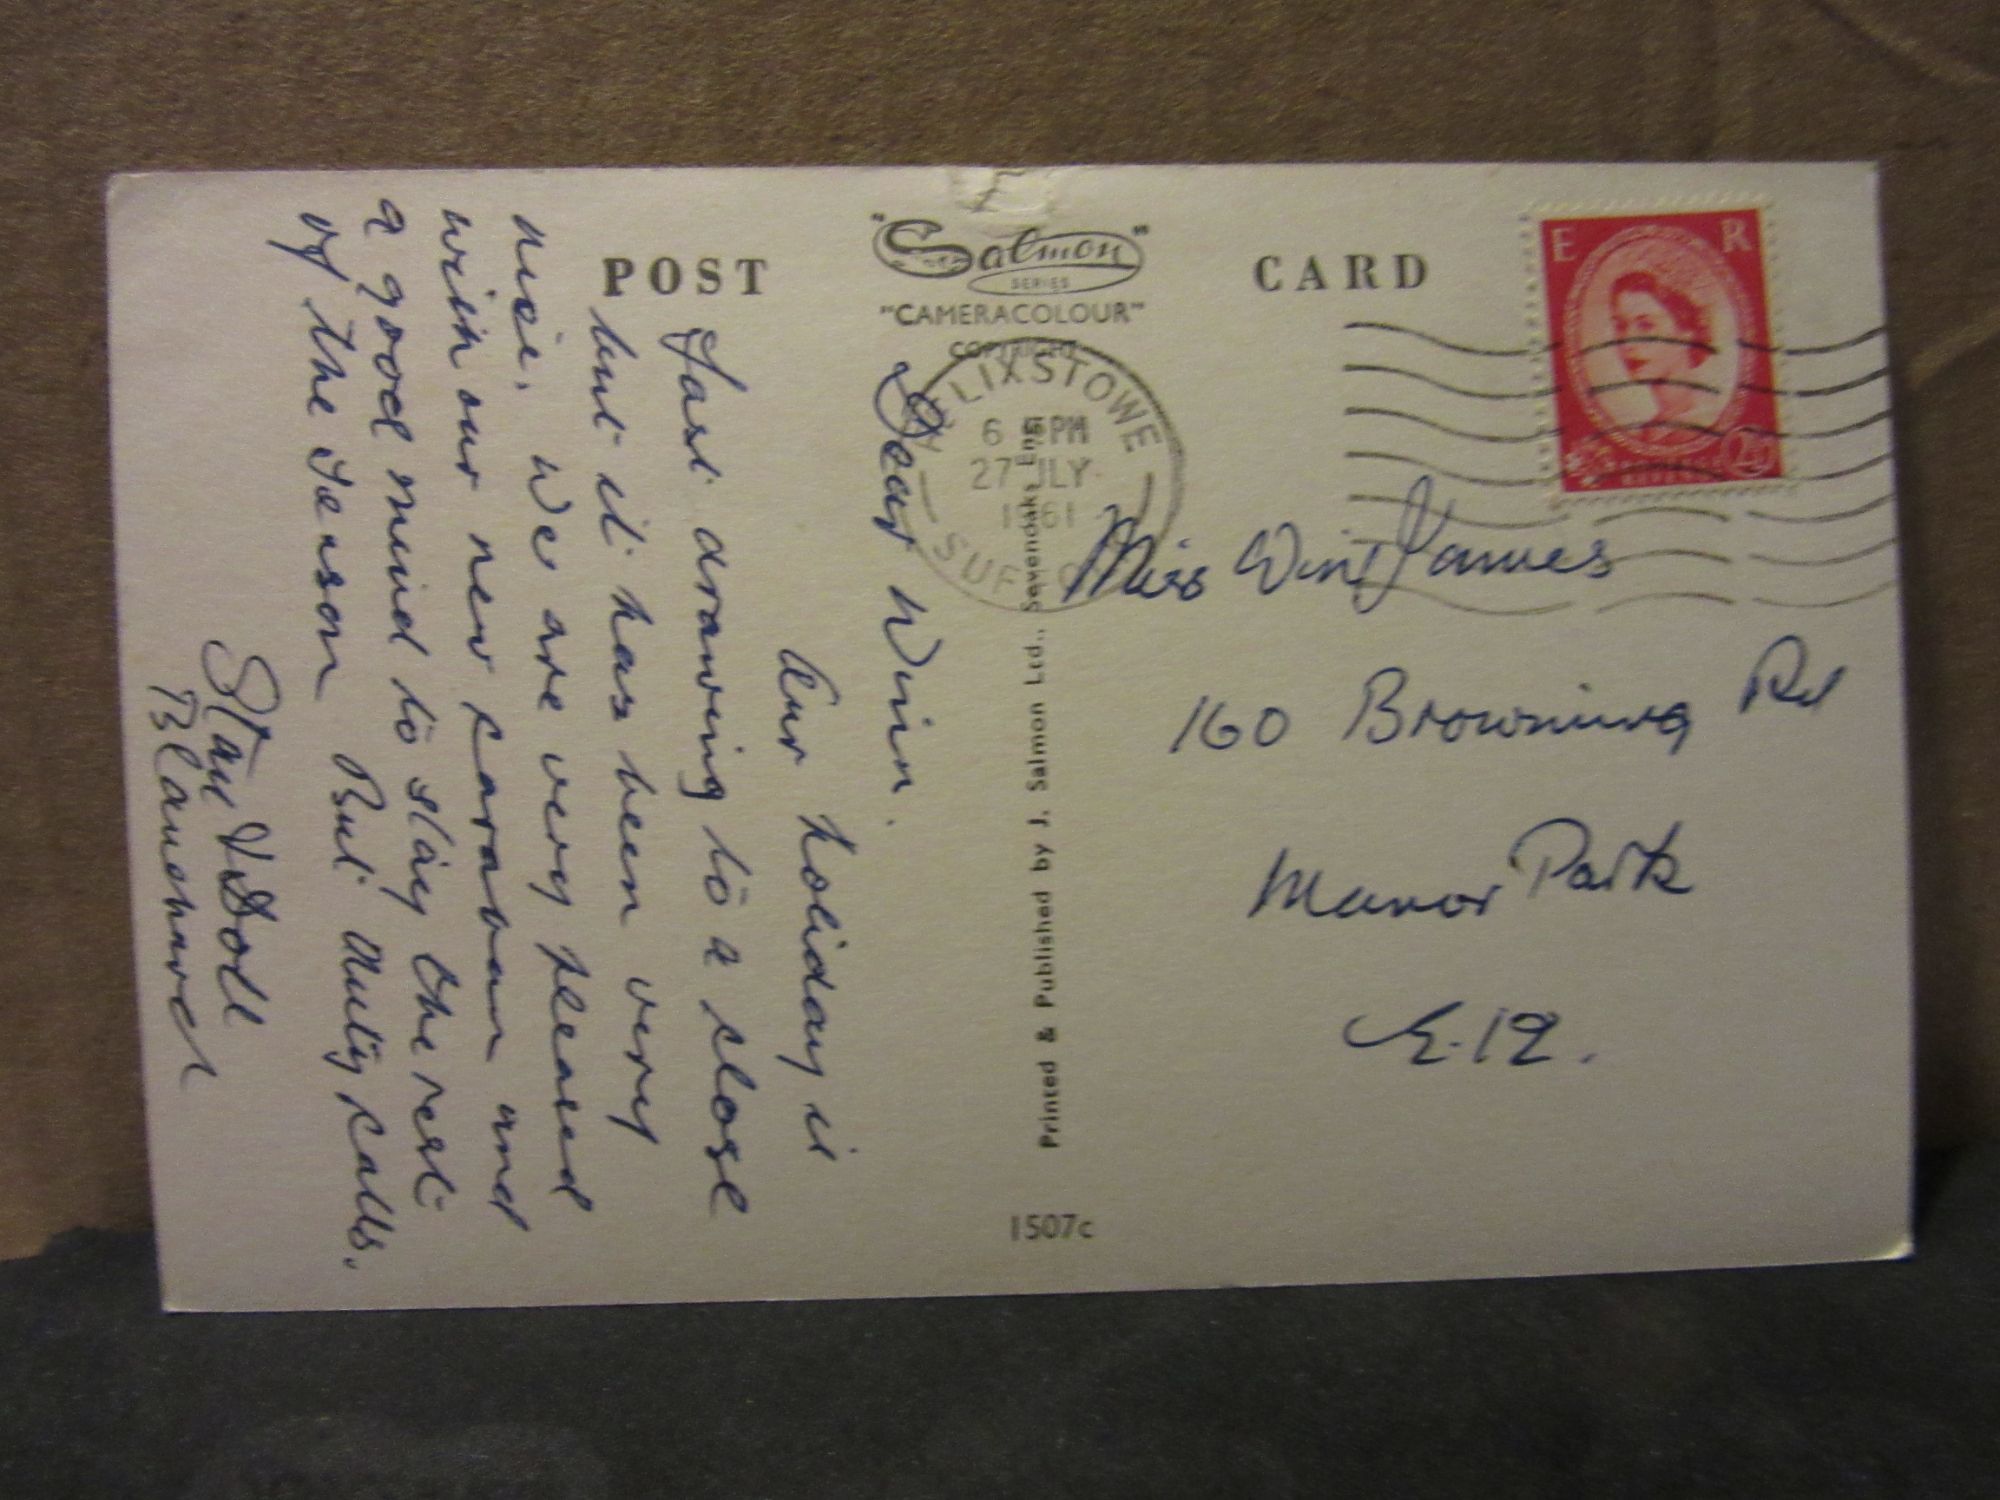 POST CARD
"Salmon"
SERIES
"CAMERACOLOUR"
COPYRIGHT
FELIXSTOWE
6 PM
27 JLY
1961
SUFFOLK
E R
POSTAGE
REVENUE
2½D
Dear Win.
Our holiday is
fast drawing to a close
but it has been very
nice. We are very pleased
with our new caravan and
a good mind to stay the rest
of the season But duty calls.
Stan & Doll
Blanchard
Printed & Published by J. Salmon Ltd., Sevenoaks, Eng.
1507c
Miss Win James
160 Browning Rd
Manor Park
E.12.